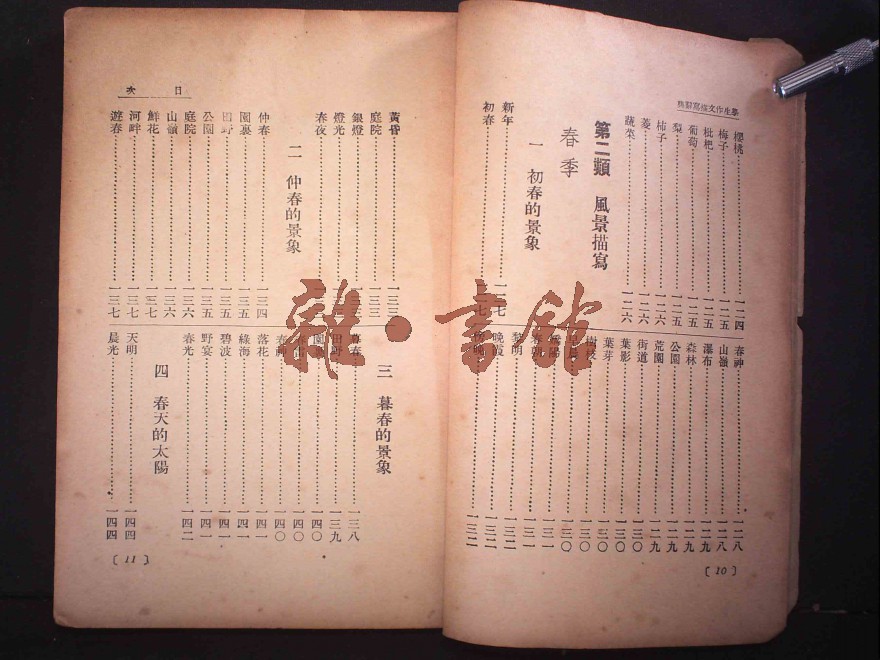 學生作文描寫辭典
櫻桃……一二四
梅子……一二五
枇杷……一二五
葡萄……一二五
梨……一二五
柿子……一二六
菱……一二六
蔬菜……一二六
第二類 風景描寫
春季
一 初春的景象
新年……一二七
初春……一二七
春神……一二八
山嶺……一二八
瀑布……一二九
森林……一二九
公園……一二九
荒園……一二九
街道……一三〇
葉影……一三〇
葉芽……一三〇
樹枝……一三〇
早晨……一三〇
……一三一
春朝……一三一
黎明……一三二
晚霞……一三二
……一三二
〔10〕
目次
黃昏……一三三
庭院……一三三
銀燈……
燈光……
春夜……
二 仲春的景象
仲春……一三四
園裏……一三五
田野……一三五
公園……一三五
庭院……一三六
山嶺……一三六
鮮花……一三七
河畔……一三七
遊春……一三七
三 暮春的景象
暮春……一三八
田野……一三九
園裏……一四〇
……一四〇
春神……一四〇
落花……一四一
綠海……一四一
碧波……一四一
野宴……一四一
春光……一四二
四 春天的太陽
天明……一四四
晨光……一四四
〔11〕
雜·書館